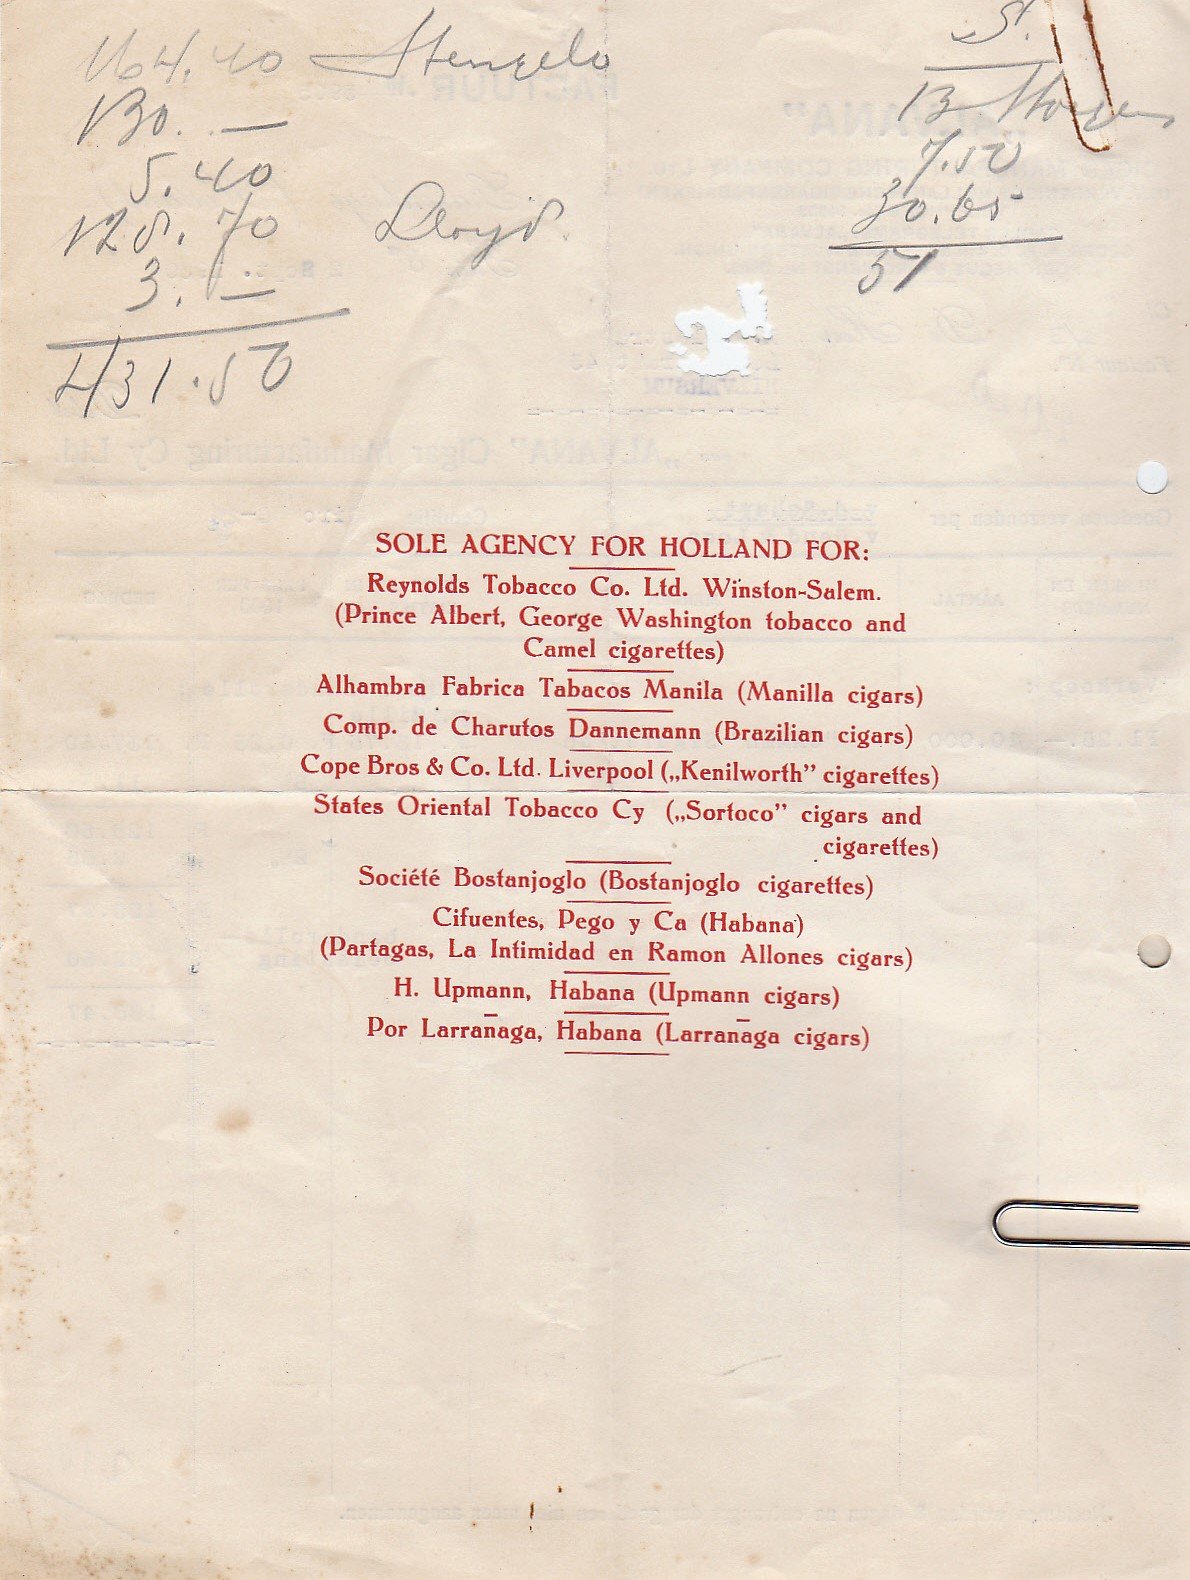 164.40 Hengelo
130. —
5.40
128.70 Lloyd.
3. —
431.50
13
7.50
30.65
51
SOLE AGENCY FOR HOLLAND FOR:
Reynolds Tobacco Co. Ltd. Winston-Salem.
(Prince Albert, George Washington tobacco and
Camel cigarettes)
Alhambra Fabrica Tabacos Manila (Manilla cigars)
Comp. de Charutos Dannemann (Brazilian cigars)
Cope Bros & Co. Ltd. Liverpool („Kenilworth” cigarettes)
States Oriental Tobacco Cy („Sortoco” cigars and
cigarettes)
Société Bostanjoglo (Bostanjoglo cigarettes)
Cifuentes, Pego y Ca (Habana)
(Partagas, La Intimidad en Ramon Allones cigars)
H. Upmann, Habana (Upmann cigars)
Por Larrañaga, Habana (Larrañaga cigars)